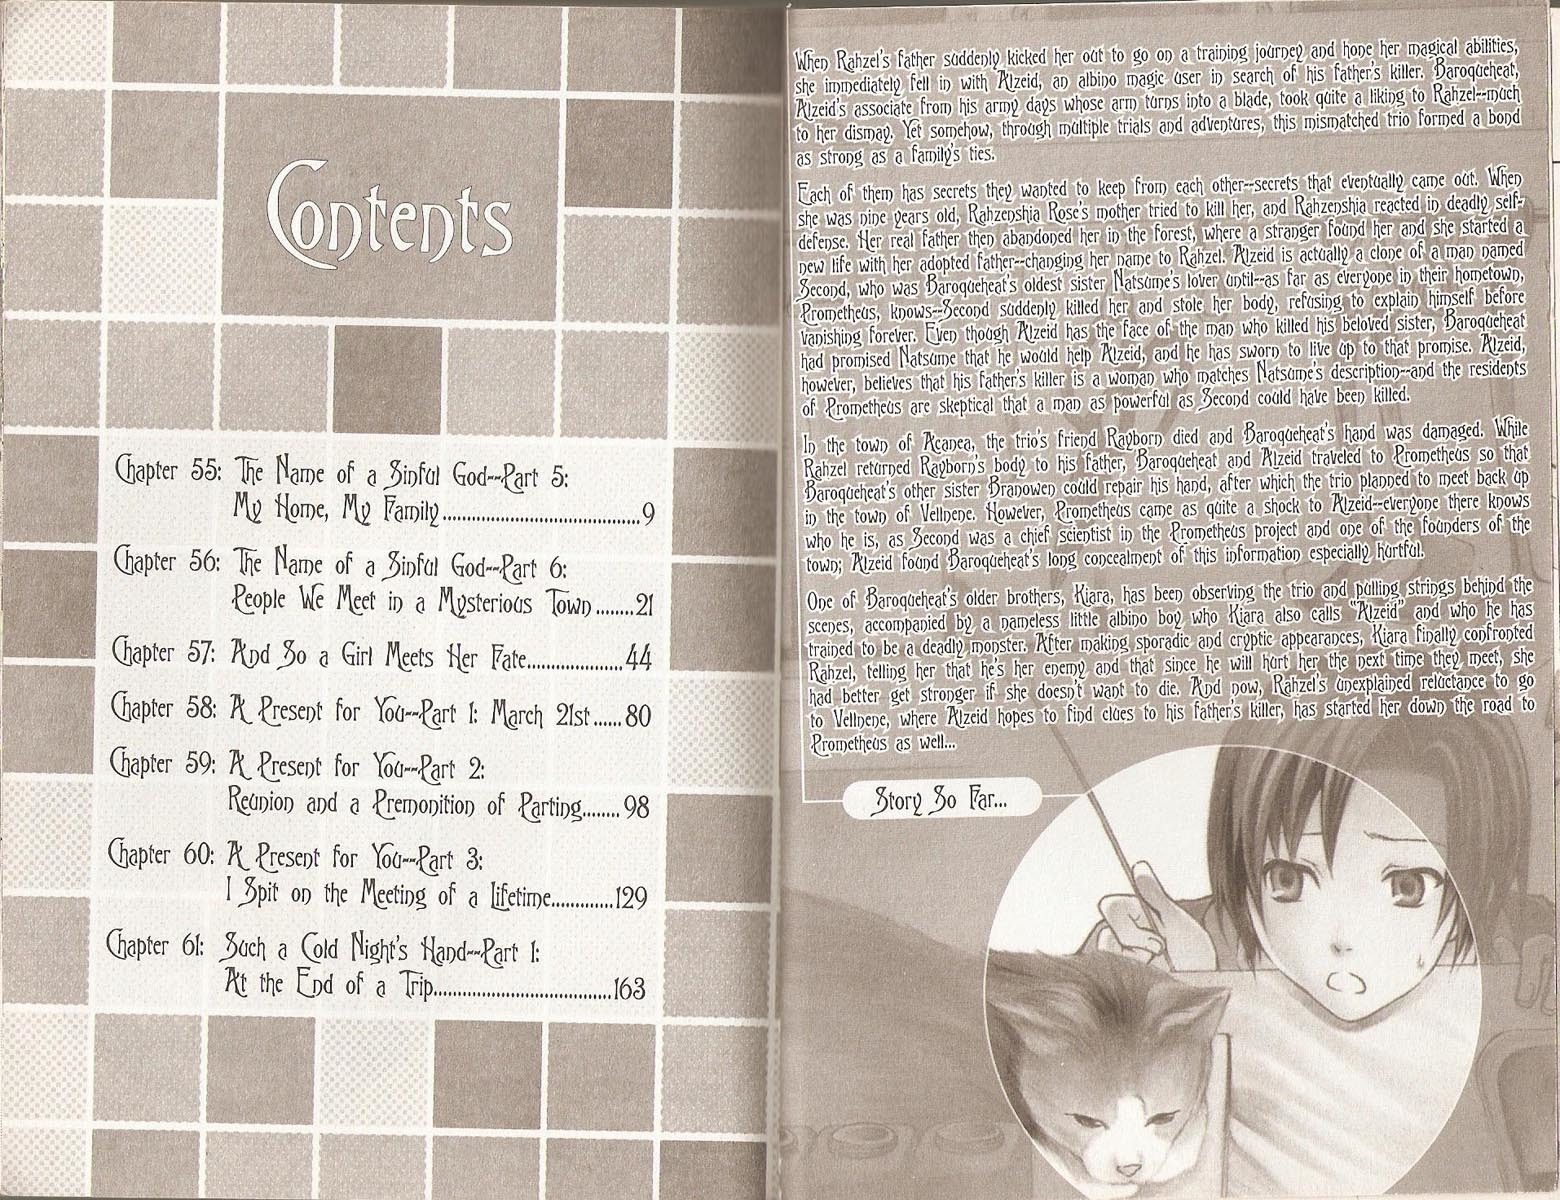 Contents
Chapter 55: The Name of a Sinful God--Part 5:
My Home, My Family........................................9
Chapter 56: The Name of a Sinful God--Part 6:
People We Meet in a Mysterious Town........21
Chapter 57: And So a Girl Meets Her Fate....................44
Chapter 58: A Present for You--Part 1: March 21st......80
Chapter 59: A Present for You--Part 2:
Reunion and a Premonition of Parting........98
Chapter 60: A Present for You--Part 3:
I Spit on the Meeting of a Lifetime.............129
Chapter 61: Such a Cold Night's Hand--Part 1:
At the End of a Trip.....................................163
When Rahzel's father suddenly kicked her out to go on a training journey and hone her magical abilities,
she immediately fell in with Alzeid, an albino magic user in search of his father's killer. Baroqueheat,
Alzeid's associate from his army days whose arm turns into a blade, took quite a liking to Rahzel--much
to her dismay. Yet somehow, through multiple trials and adventures, this mismatched trio formed a bond
as strong as a family's ties.
Each of them has secrets they wanted to keep from each other--secrets that eventually came out. When
she was nine years old, Rahzenshia Rose's mother tried to kill her, and Rahzenshia reacted in deadly self-
defense. Her real father then abandoned her in the forest, where a stranger found her and she started a
new life with her adopted father--changing her name to Rahzel. Alzeid is actually a clone of a man named
Second, who was Baroqueheat's oldest sister Natsume's lover until--as far as everyone in their hometown,
Prometheus, knows--Second suddenly killed her and stole her body, refusing to explain himself before
vanishing forever. Even though Alzeid has the face of the man who killed his beloved sister, Baroqueheat
had promised Natsume that he would help Alzeid, and he has sworn to live up to that promise. Alzeid,
however, believes that his father's killer is a woman who matches Natsume's description--and the residents
of Prometheus are skeptical that a man as powerful as Second could have been killed.
In the town of Acanea, the trio's friend Rayborn died and Baroqueheat's hand was damaged. While
Rahzel returned Rayborn's body to his father, Baroqueheat and Alzeid traveled to Prometheus so that
Baroqueheat's other sister Branowen could repair his hand, after which the trio planned to meet back up
in the town of Vellnene. However, Prometheus came as quite a shock to Alzeid--everyone there knows
who he is, as Second was a chief scientist in the Prometheus project and one of the founders of the
town; Alzeid found Baroqueheat's long concealment of this information especially hurtful.
One of Baroqueheat's older brothers, Kiara, has been observing the trio and pulling strings behind the
scenes, accompanied by a nameless little albino boy who Kiara also calls "Alzeid" and who he has
trained to be a deadly monster. After making sporadic and cryptic appearances, Kiara finally confronted
Rahzel, telling her that he's her enemy and that since he will hurt her the next time they meet, she
had better get stronger if she doesn't want to die. And now, Rahzel's unexplained reluctance to go
to Vellnene, where Alzeid hopes to find clues to his father's killer, has started her down the road to
Prometheus as well...
Story So Far...